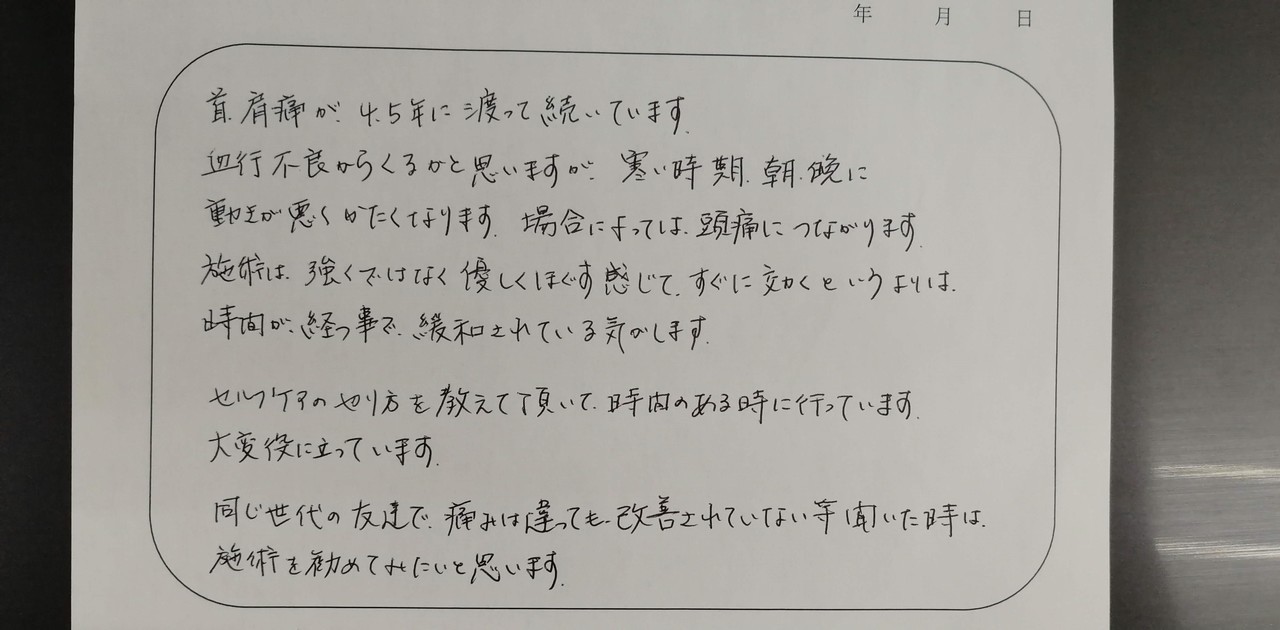 年 月 日
首.肩痛が、4.5年に渡って続いています。
血行不良からくるかと思いますが、寒い時期.朝.晩に
動きが悪くかたくなります。場合によっては、頭痛につながります。
施術は、強くではなく優しくほぐす感じで、すぐに効くというよりは、
時間が、経つ事で、緩和されている気がします。
セルフケアのやり方を教えて頂いて、時間のある時に行っています。
大変役に立っています。
同じ世代の友達で、痛みは違っても、改善されていない等聞いた時は、
施術を勧めてみたいと思います。